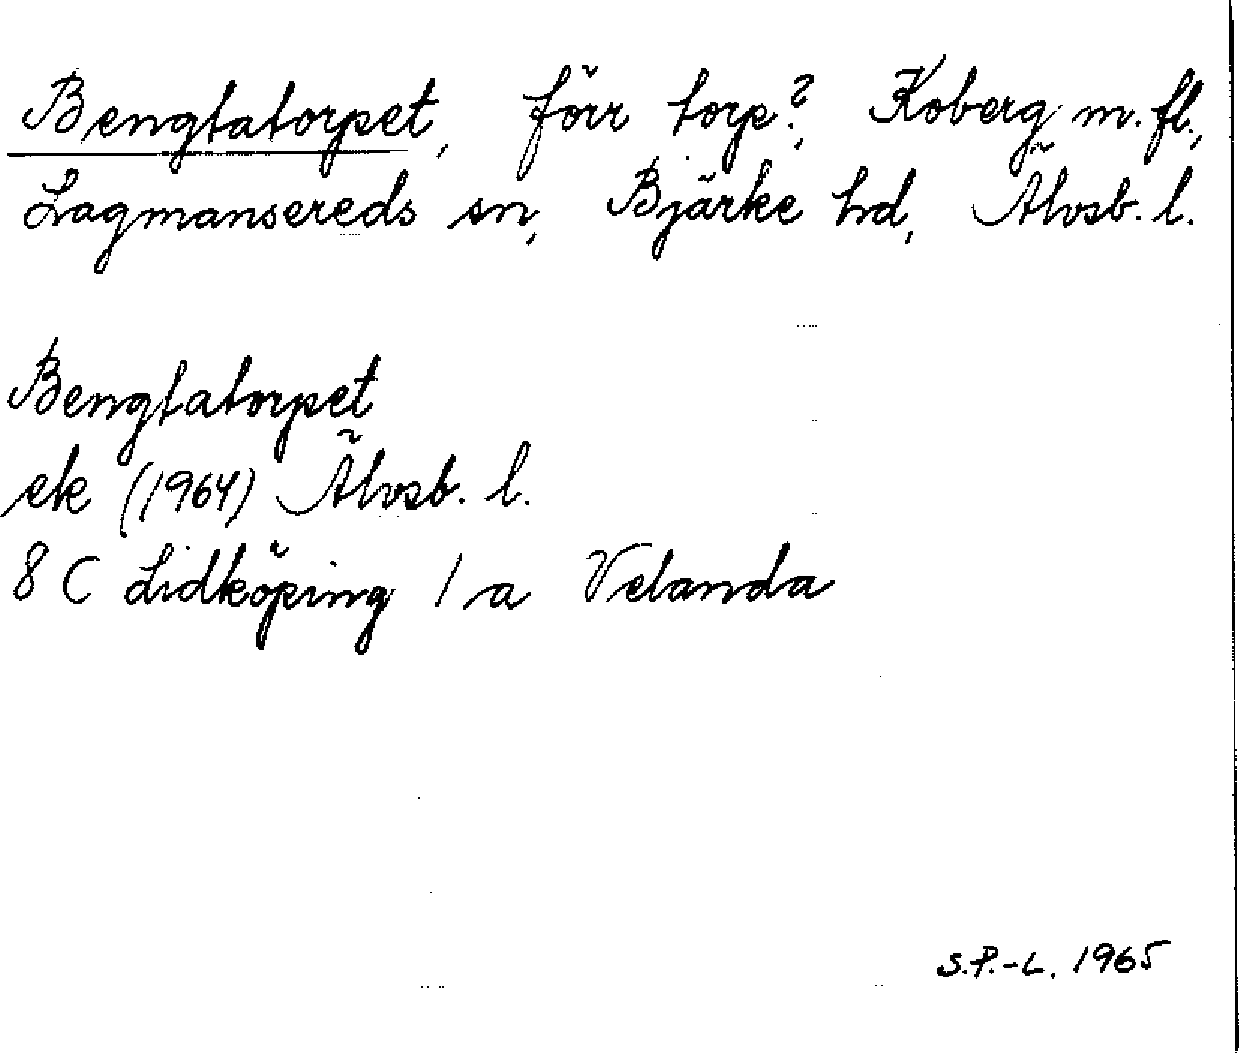 Bengtatorpet, förr torp?, Koberg m.fl.,
Lagmansereds sn, Bjärke hd, Älvsb. l.
Bengtatorpet
ek (1964) Älvsb. l.
8 C Lidköping 1 a Velanda
S.P.-L. 1965